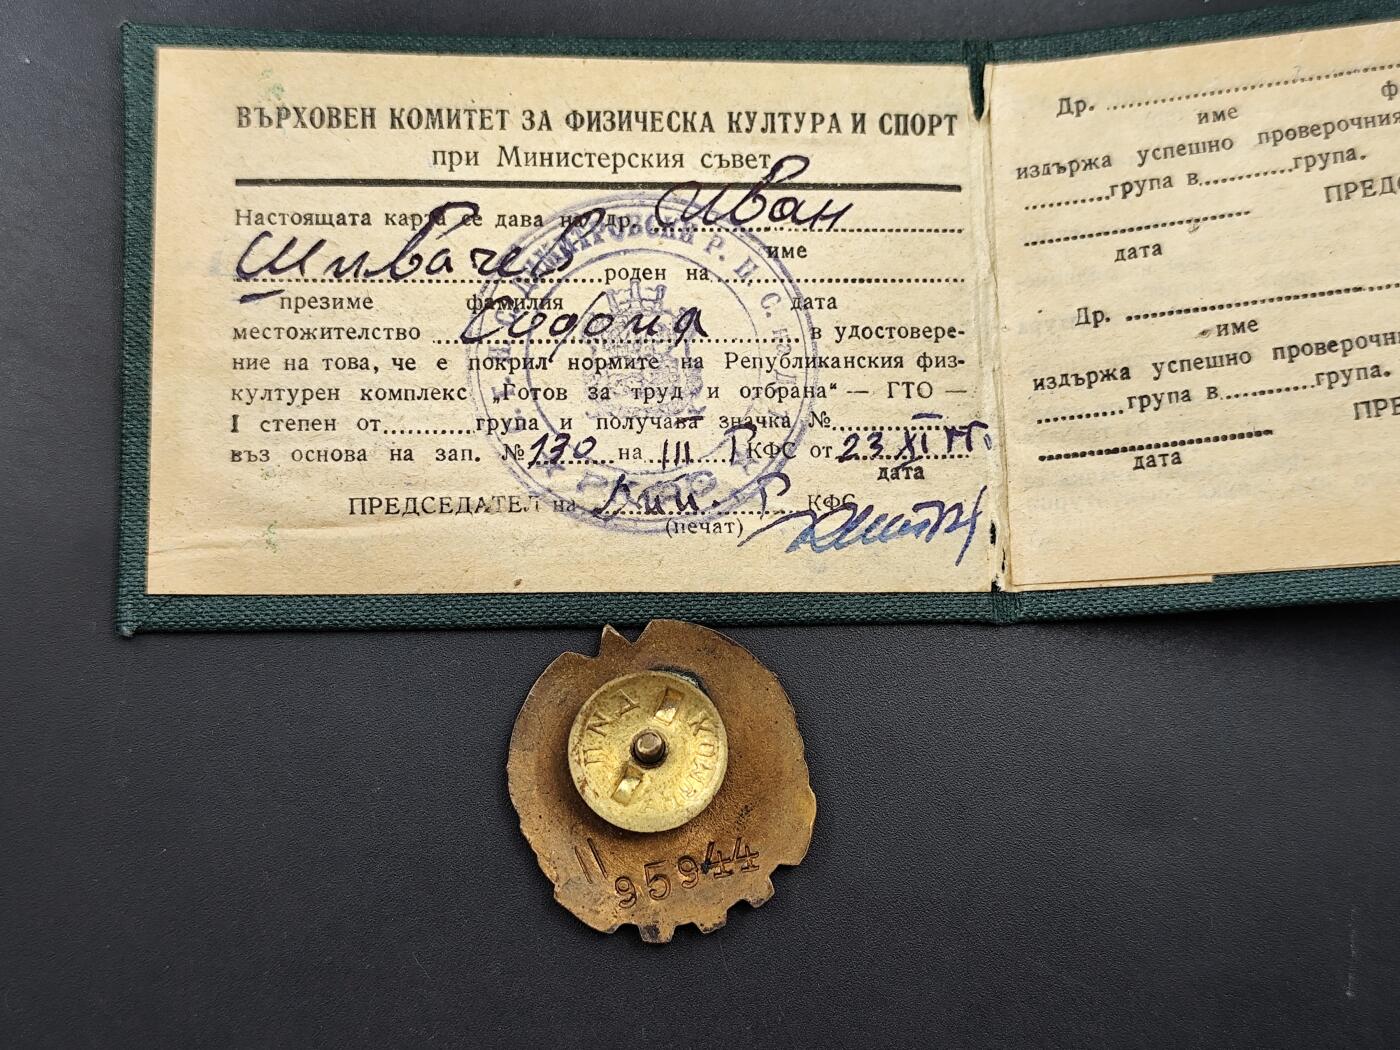 ВЪРХОВЕН КОМИТЕТ ЗА ФИЗИЧЕСКА КУЛТУРА И СПОРТ
при Министерския съвет
Настоящата карта се дава на др. Иван
име
Шивачев роден на
презиме фамилия дата
местожителство София в удостовере-
ние на това, че е покрил нормите на Републиканския физ-
културен комплекс „Готов за труд и отбрана“ — ГТО —
I степен от.........група и получава значка №
въз основа на зап. № 130 на III Г КФС от 23 XI
дата
ПРЕДСЕДАТЕЛ на КФС
(печат)
Др.
име
издържа успешно проверочния
група в група.
ПРЕДС
дата
Др.
име
издържа успешно проверочни
група в група.
ПРЕ
дата
II
95944